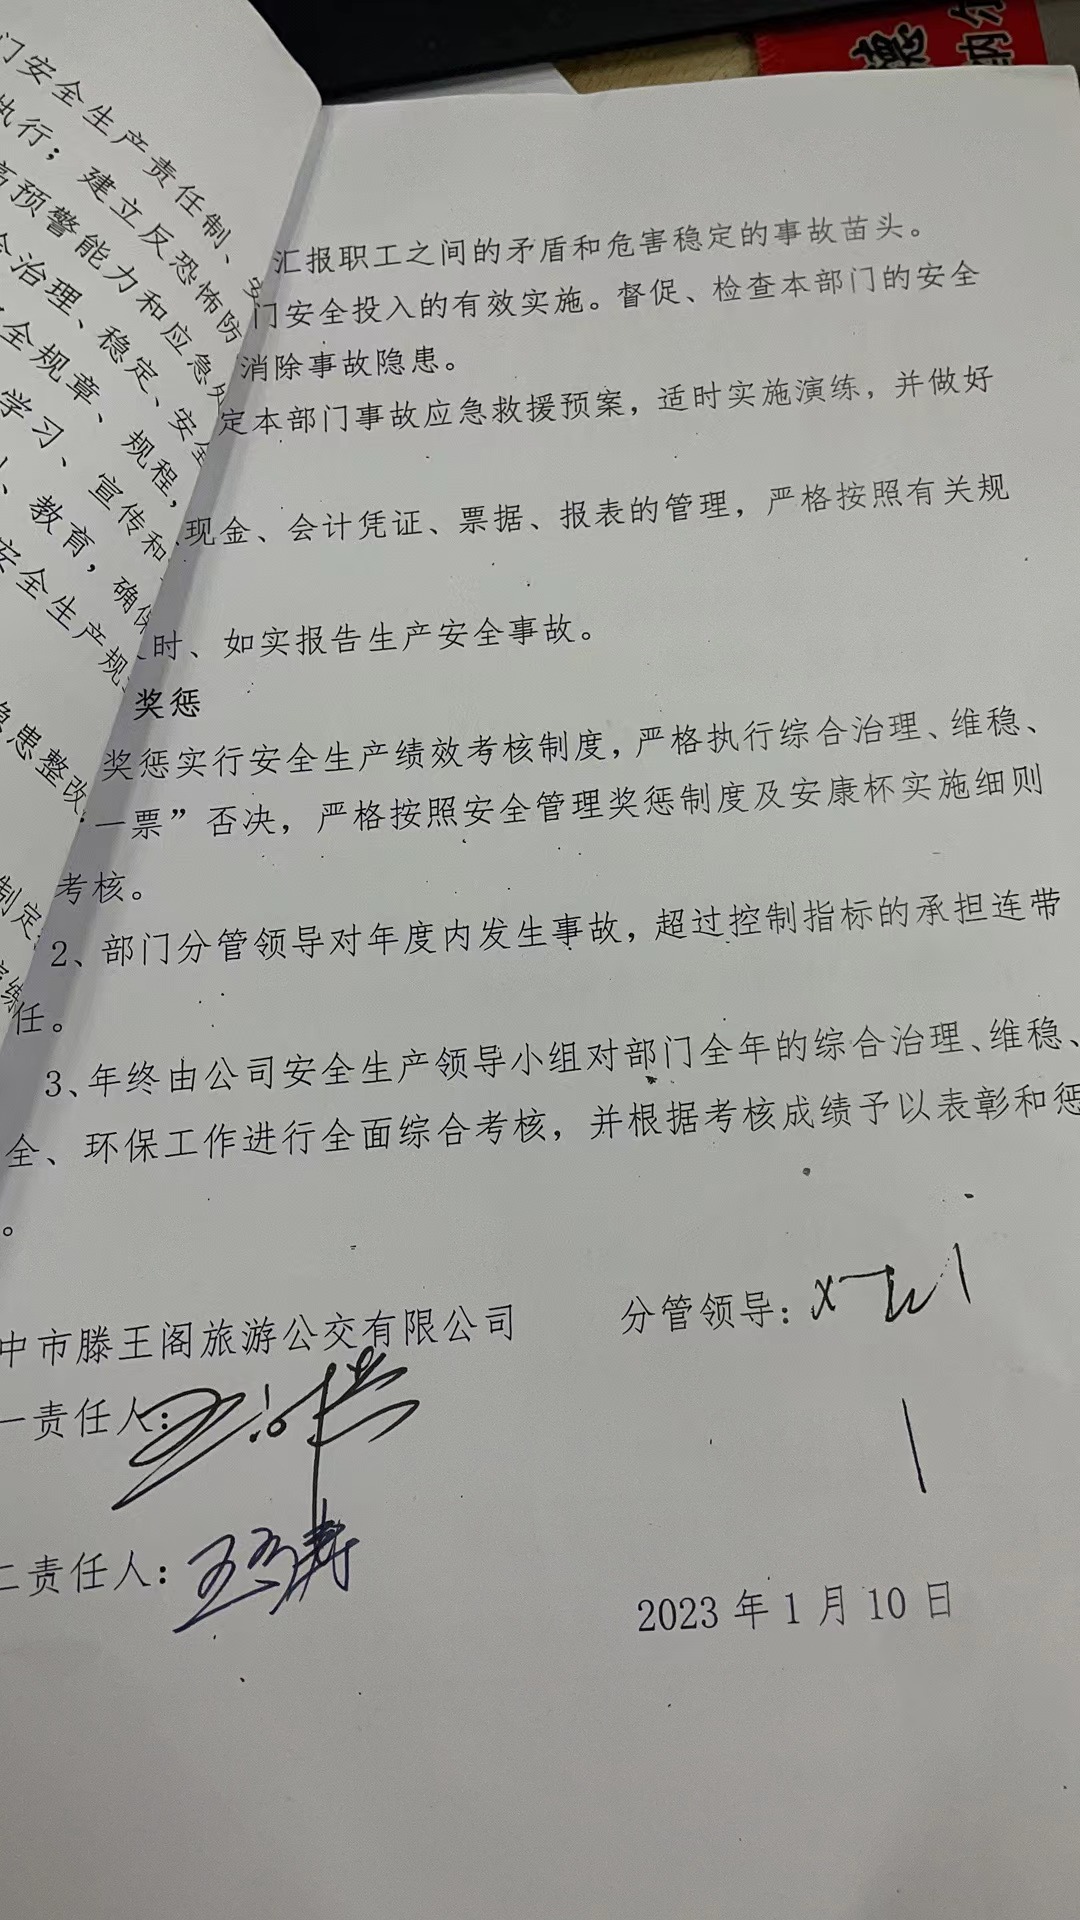 德
纳
门安全生产责任制、
执行；建立反恐怖防
预警能力和应急
治理、稳定、安全
全规章、规程，
学习、宣传和
、教育，确保
安全生产规
患整改
制定
练
汇报职工之间的矛盾和危害稳定的事故苗头。
门安全投入的有效实施。督促、检查本部门的安全
消除事故隐患。
定本部门事故应急救援预案，适时实施演练，并做好
现金、会计凭证、票据、报表的管理，严格按照有关规
时、如实报告生产安全事故。
奖惩
奖惩实行安全生产绩效考核制度，严格执行综合治理、维稳、
“一票”否决，严格按照安全管理奖惩制度及安康杯实施细则
考核。
2、部门分管领导对年度内发生事故，超过控制指标的承担连带
任。
3、年终由公司安全生产领导小组对部门全年的综合治理、维稳、
全、环保工作进行全面综合考核，并根据考核成绩予以表彰和惩
。
中市滕王阁旅游公交有限公司
分管领导：
一责任人：
二责任人：
2023年1月10日